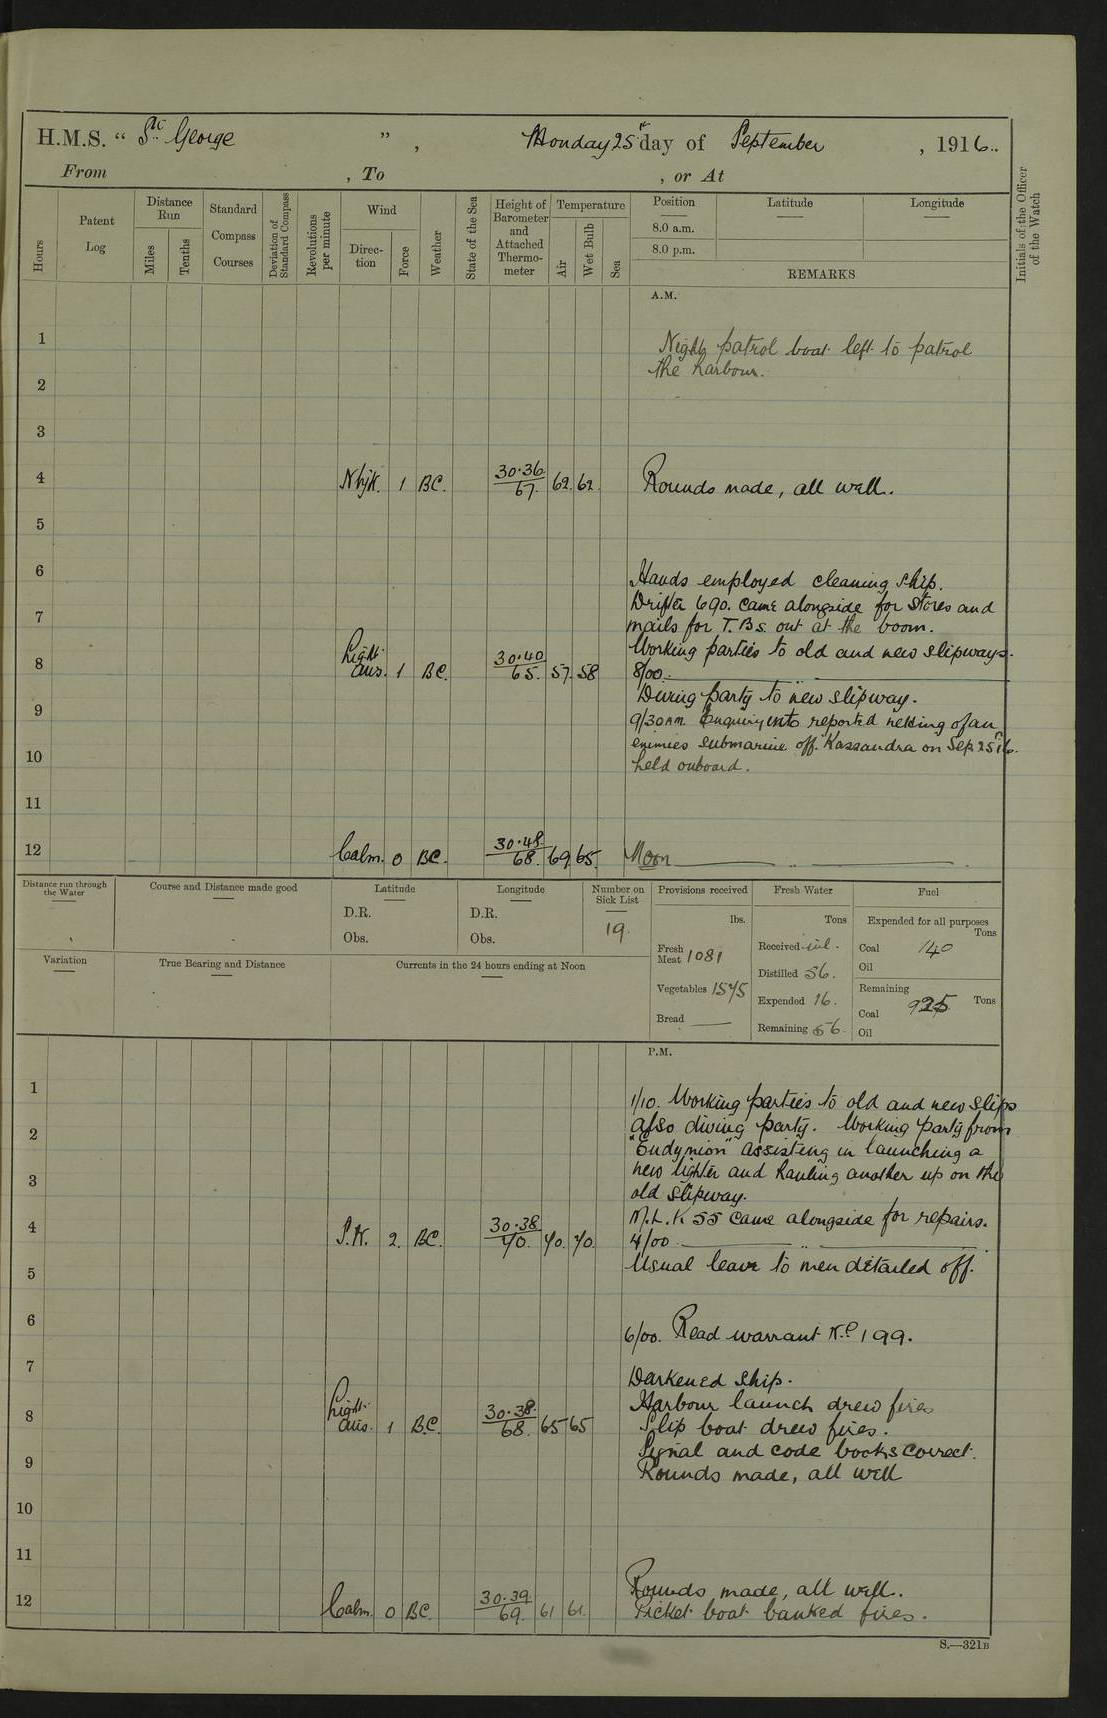 H.M.S. “ St. George ” , Monday 25th day of September , 1916..
From , To , or At
Hours
Patent Log
Distance Run
Miles
Tenths
Standard Compass Courses
Deviation of Standard Compass
Revolutions per minute
Wind
Direction
Force
Weather
State of the Sea
Height of Barometer and Attached Thermometer
Temperature
Air
Wet Bulb
Sea
Position
8.0 a.m.
8.0 p.m.
Latitude
Longitude
REMARKS
Initials of the Officer of the Watch
A.M.
1
Night patrol boat left to patrol
2 the harbour.
3
4 1 BC. 30.36/67. 62. 62. Rounds made, all well.
5
6 Hands employed cleaning ship.
Drifter 690. came alongside for stores and
7 mails for T.Bs. out at the boom.
Working parties to old and new slipways.
8 Light airs. 1 BC. 30.40/65. 57. 58 8/00.
Diving party to new slipway.
9 9/30 AM Enquiry into reported netting of an
enemies submarine off Kassandra on Sep. 25th 16.
10 held onboard.
11
12 Calm. 0 BC. 30.48/68. 69. 65. Noon
Distance run through the Water
Course and Distance made good
Latitude
D.R.
Obs.
Longitude
D.R.
Obs.
Number on Sick List
19.
Provisions received
lbs.
Fresh Meat 1081
Vegetables 1575
Bread
Fresh Water
Tons
Received nil.
Distilled 56.
Expended 16.
Remaining 56.
Fuel
Expended for all purposes
Tons
Coal 140
Oil
Remaining
Coal 925 Tons
Oil
Variation
True Bearing and Distance
Currents in the 24 hours ending at Noon
P.M.
1 1/10. Working parties to old and new slips
2 also diving party. Working party from
"Endymion" assisting in launching a
3 new lighter and hauling another up on the
old slipway.
4 M.L. K 55 came alongside for repairs.
2. BC. 30.38/70. 70. 70. 4/00
5 Usual leave to men detailed off.
6 6/00. Read warrant No. 199.
7 Darkened ship.
Harbour launch drew fires
8 Light airs. 1 B.C. 30.38./68. 65 65 Slip boat drew fires.
Signal and code books correct.
9 Rounds made, all well
10
11
12 Calm. 0 BC. 30.39/69. 61 61. Rounds made, all well.
Picket boat banked fires.
S.—321B